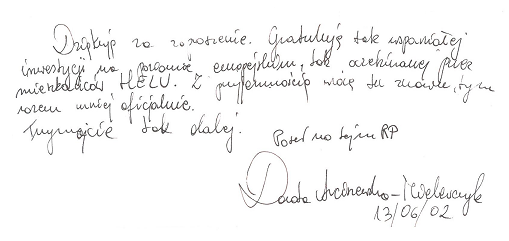 Dziękuję za zaproszenie. Gratuluję tak wspaniałej
inwestycji na poziomie europejskim, tak oczekiwanej przez
mieszkańców HELU. Z przyjemnością wrócę tu znowu, tym
razem mniej oficjalnie.
Trzymajcie tak dalej.
Poseł na Sejm RP
Dorota Arciszewska-Mielewczyk
13/06/02